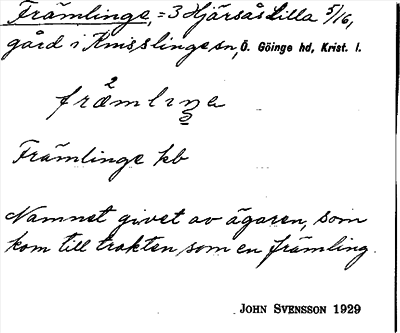 Främlinge, = 3 Hjärsås Lilla 5/16,
gård i Knisslinge sn, Ö. Göinge hd, Krist. l.
Främlinge kb
Namnet givet av ägaren, som
kom till trakten som en främling.
JOHN SVENSSON 1929